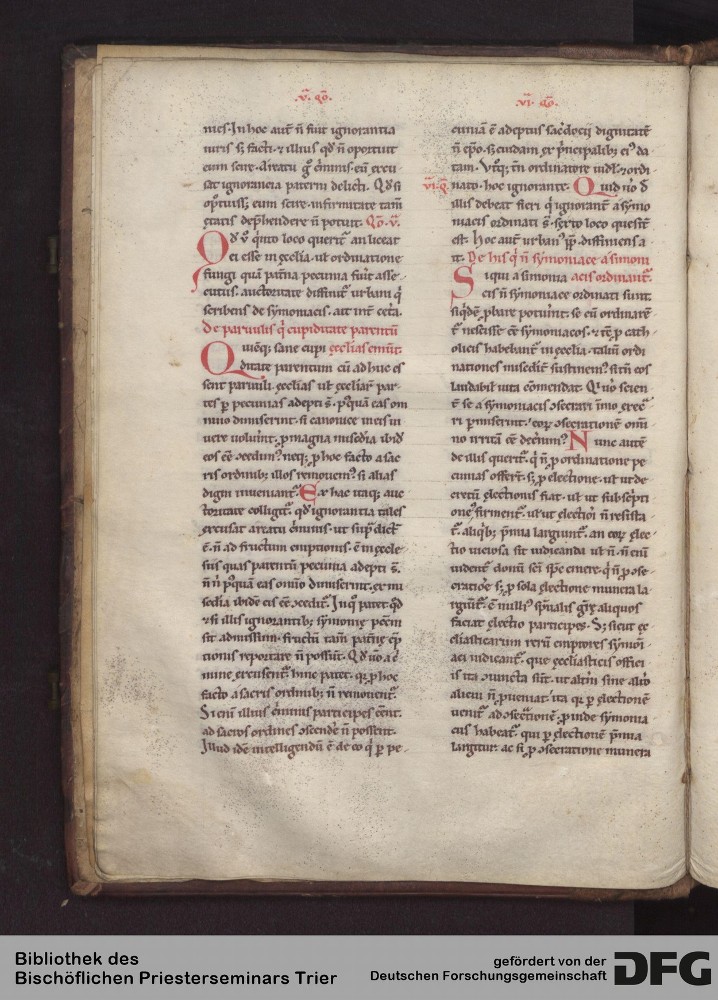 .v. qō.
nies. In hoc aut̄ n̄ fuit ignorantia
iuris sʒ facti. ⁊ illius qđ n̄ oportuit
eum scire. A reatu g̊ c̄minis. eū excu
sat ignorancia paterni delicti. Qđ si
etatis dep̄hendere n̄ potuit. Qō. v.
Qđ v̊ q̇nto loco querit᷑ an liceat
ei esse in ęcclia. uł ordinatione
fungi quā pat̄na pecunia fuit asse
cutus. auctoritate diffinit᷑ urbani q̇
scribens de symoniacis. ait int̄ cet̄a.
De paruulis q̇ cupiditate parentū
ęcclias emūt.
Quicūq; sane cupi
ditate parentum cū adhuc es
sent paruuli. ęcclias uł ęccliaꝝ par
tes ꝑ pecunias adepti s̄. p̊quā eas om
nino dimiserint. si canonice uiuere
uoluerint. ꝓ magna mis̄dia ibid
eos ēē ↄcedim᷒. neq; ꝓ hoc facto a sac
ris ordinib; illos remouem᷒. si alias
digni inueniant᷑. Ex hac itaq; auc
toritate colligit᷑. qđ ignorantia tales
excusat a reatu c̄minis. ut sup̄ dict̄
ē. n̄ ad fructum emptionis. ē in ęccle
siis quas parentū pecunia adepti s̄.
n̄ n̄ p̊quā eas om̄ino dimiserint. ex mi
sc̄dia ibidē eis ēē ↄcedit᷑. In q̊ patet qđ
⁊ si illis ignorantib; symonię pec̄m
sit admissum. fructū tam̄ pat̄nę ēp
tionis reportare n̄ possūt. Qđ u̇o a c̄
mine excusent᷑. hinc patet. q̇ ꝓ hoc
facto a sacris ordinib; n̄ remouent᷑.
Si eni illius c̄minis participes eēnt.
ad sac̄os ordines ascende n̄ possent.
Illud idē intelligendū ē de eo q̇ ꝑ pe
.vi. qō.
cuniā ē adeptus sac̄docii dignitatē
n̄ ep̄o. sʒ cuidam ex p̄ncipalib; ei᷒ da
tam. Vt̊q; tn̄ ordinatore uidl. ⁊ ordi
vi. q̄.
nato. hoc ignorante. Quid u̇o đ
illis debeat fieri q̇ ignorant᷑ a symo
niacis ordinati s̄. sexto loco quesit̄
est. hoc aut̄ urban᷒ p̄p. diffiniens a
it. De his q̇ n̄ symoniace a simoni
acis ordinant᷑.
Siqui a simonia
cis n̄ symoniace ordinati sunt.
siq̇dē ꝓbare potuīnt. se cū ordinarē
t᷑ nescisse eē symoniacos. ⁊ tē ꝓ cath
olicis habebant᷑ in ęcclia. taliū ordi
nationes mis̄dit᷑ sustinem᷒. si tn̄ eos
laudabil' uita cōmendat. Qi u̇o scien
t᷑ se a symoniacis ↄsecrari imo execͬ
ri ꝑmiserunt. eoꝝ ↄsecrationē om̄i
no irritā eē decnim᷒. Nunc autē
de illis querit᷑. q̇ n̄ ꝑ ordinatione pe
cunias offert᷑. sʒ ꝑ electione. uł ut de
cretū electionis fiat. uł ut subscp̄ti
one firment᷑. uł ut electiōi n̄ resista
t᷑. aliq̇b; p̄mia largiunt᷑. an eoꝝ elec
tio uiciosa sit iudicanda uł n̄. n̄ eni
uident᷑ donū sc̄i sp̄c emere. q̇ n̄ ꝓ ↄse
cratiōe sʒ ꝓ sola electione munera la
faciat electio participes. Sʒ sicut ec
cliasticarum rerū emptores symōi
aci iudicant᷑. que ęccliasticis offici
is ita ↄiuncta sūt. ut alt̄m sine alt̊o
alicui n̄ ꝓueniat. ita q̇ ꝑ electionē
uenit᷑ ad ↄsecͬtionē. ꝓinde symonia
cus habeat᷑. qui ꝑ electionē p̄mia
largitur. ac si ꝓ ↄsecratione munera
Bibliothek des
Bischöflichen Priesterseminars Trier
gefördert von der
Deutschen Forschungsgemeinschaft
DFG